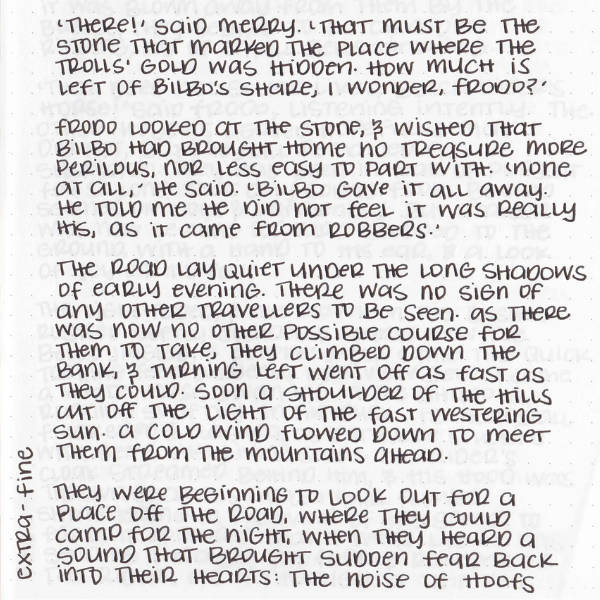 'There!' said Merry. 'That must be the
stone that marked the place where the
Trolls' gold was hidden. How much is
left of Bilbo's share, I wonder, Frodo?'
Frodo looked at the stone, & wished that
Bilbo had brought home no treasure more
perilous, nor less easy to part with. 'None
at all,' he said. 'Bilbo gave it all away.
He told me he did not feel it was really
his, as it came from robbers.'
The road lay quiet under the long shadows
of early evening. There was no sign of
any other travellers to be seen. As there
was now no other possible course for
them to take, they climbed down the
bank, & turning left went off as fast as
they could. Soon a shoulder of the hills
cut off the light of the fast westering
sun. A cold wind flowed down to meet
them from the mountains ahead.
They were beginning to look out for a
place off the road, where they could
camp for the night, when they heard a
sound that brought sudden fear back
into their hearts: the noise of hoofs
extra-fine